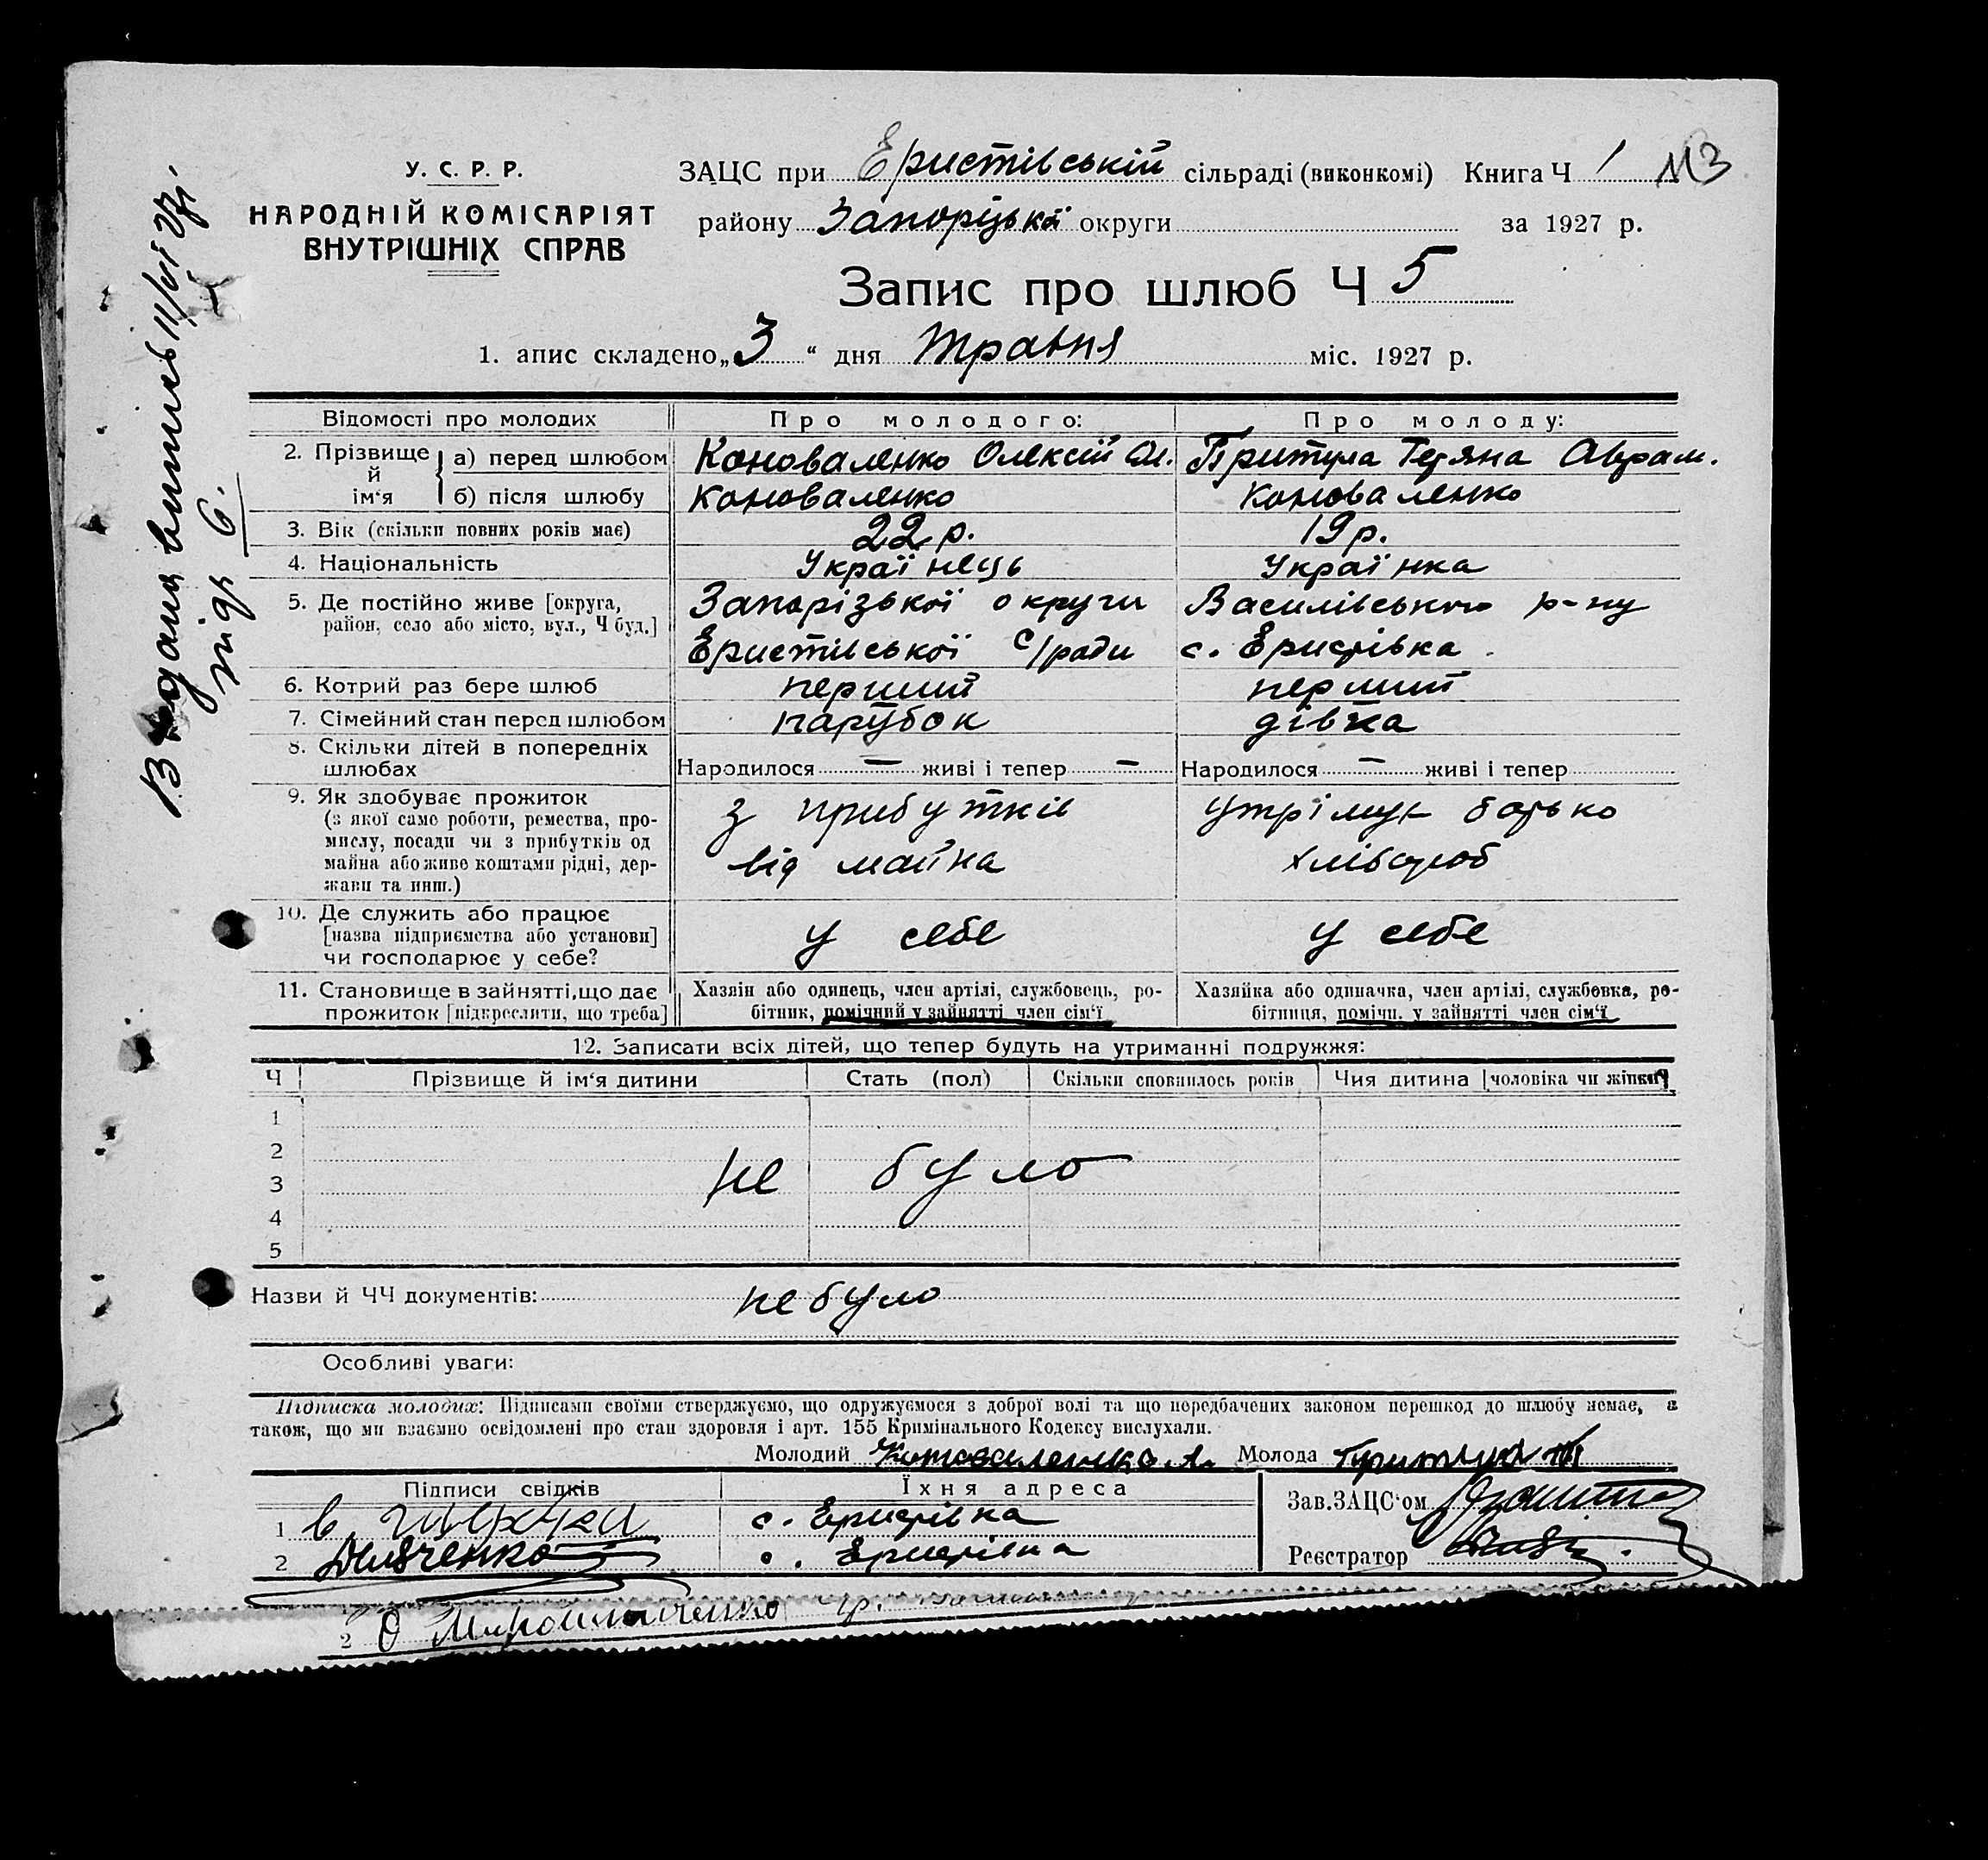 У. С. Р. Р.
НАРОДНІЙ КОМІСАРІЯТ
ВНУТРІШНІХ СПРАВ
ЗАЦС при Еристівській сільраді (виконкомі) Книга Ч 1 113
району Запоріцької округи за 1927 р.
Запис про шлюб Ч 5
1. апис складено „3“ дня Травня міс. 1927 р.
Відомості про молодих
Про молодого:
Про молоду:
2. Прізвище й ім‘я
а) перед шлюбом
Коноваленко Олексій Ол.
Притула Тетяна Аврам.
б) після шлюбу
Коноваленко
Коноваленко
3. Вік (скільки повних років має)
22 р.
19 р.
4. Національність
Українець
Українка
5. Де постійно живе [округа,
район, село або місто, вул., Ч буд.]
Запорізької округи
Еристівської с/ради
Василівського р-ну
с. Еристівка.
6. Котрий раз бере шлюб
перший
перший
7. Сімейний стан перед шлюбом
парубок
дівка
8. Скільки дітей в попередніх
шлюбах
Народилося — живі і тепер —
Народилося — живі і тепер
9. Як здобуває прожиток
(з якої само роботи, ремества, про-
мислу, посади чи з прибутків од
майна або живе коштами рідні, дер-
жави та инш.)
з прибутків
від майна
утрімує батько
хлібороб
10. Де служить або працює
[назва підприємства або установи]
чи господарює у себе?
у себе
у себе
11. Становище в зайнятті, що дає
прожиток [підкреслити, що треба]
Хазяін або одинець, член артілі, службовець, ро-
бітник, помічний у зайнятті член сім‘ї
Хазяйка або одиначка, член артілі, службовка, ро-
бітниця, помічн. у зайнятті член сім‘ї
12. Записати всіх дітей, що тепер будуть на утриманні подружжя:
Ч Прізвище й ім‘я дитини Стать (пол) Скільки сповнилось років Чия дитина [чоловіка чи жінки]
1
2
3
4
5
не було
Назви й ЧЧ документів: не було
Особливі уваги:
Підписка молодих: Підписами своїми стверджуємо, що одружуємося з доброї волі та що передбачених законом перешкод до шлюбу немає, а
також, що ми взаємно освідомлені про стан здоровля і арт. 155 Кримінального Кодексу вислухали.
Молодий Коноваленко А. Молода Притула Т
Підписи свідків
Їхня адреса
1
с. Еристівка
2
с. Еристівка
Зав. ЗАЦС‘ом
Реєстратор
2 О Мирошниченко
Видана випись 11/VI 27р.
під № 6.